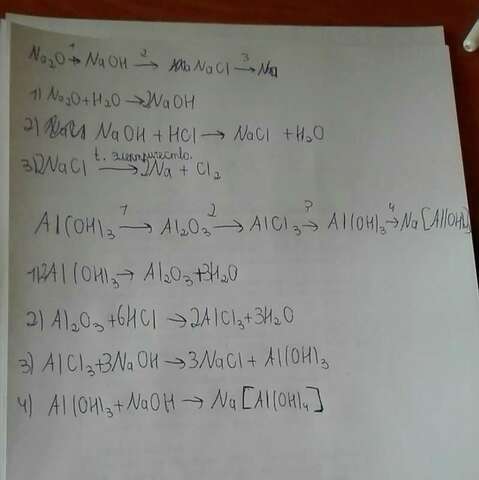 Na₂O →¹ NaOH →² NaCl →³ Na
1) Na₂O + H₂O → 2NaOH
2) NaOH + HCl → NaCl + H₂O
3) 2NaCl t, электричество. → 2Na + Cl₂
Al(OH)₃ →¹ Al₂O₃ →² AlCl₃ →³ Al(OH)₃ →⁴ Na[Al(OH)₄]
1) 2Al(OH)₃ → Al₂O₃ + 3H₂O
2) Al₂O₃ + 6HCl → 2AlCl₃ + 3H₂O
3) AlCl₃ + 3NaOH → 3NaCl + Al(OH)₃
4) Al(OH)₃ + NaOH → Na[Al(OH)₄]